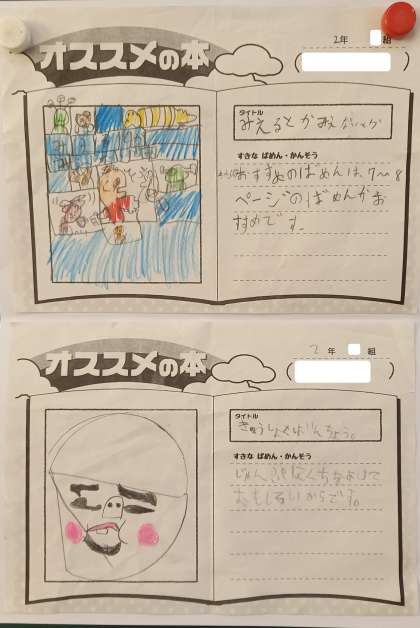 オススメの本
2年 組
タイトル
みえるとかみえないとか
すきな ばめん・かんそう
おすすめのばめんは、7〜8
ページのばめんがお
すすめです。
オススメの本
2年 組
タイトル
きゅうしょくばんちょう。
すきな ばめん・かんそう
おもしろいからです。